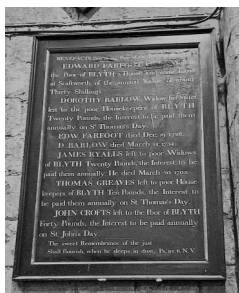 BENEFACTIONS to the Poor of
EDWARD FARFOOT
the Poor of BLYTH a House and
at Scaftworth, of the annual
Thirty Shillings.
DOROTHY BARLOW, Widow
left to the poor Housekeepers of BLYTH
Twenty Pounds, the Interest to be paid them
annually on St Thomas's Day.
EDW. FARFOOT died Dec.
D. BARLOW died March
JAMES RYALLS left to poor Widows
of BLYTH Twenty Pounds, the Interest to be
paid them annually. He died March
THOMAS GREAVES left to poor House
keepers of BLYTH Ten Pounds, the Interest to
be paid them annually on St Thomas's Day.
JOHN CROFTS left to the Poor of BLYTH
Forty Pounds, the Interest to be paid annually
on St John's Day.
The sweet Remembrance of the just
Shall flourish, when he sleeps in dust. Ps. 112. 6. N.V.